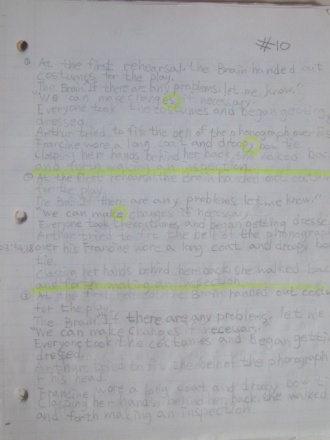 #10
At the first rehearsal the Brain handed out
costumes for the play.
The Brain if there are any problems let me know."
"We can make changes if necessary.
Everyone took the costumes and began getting
dressed.
Arthur tried to fit the bell of the phonograph over his
Francine wore a long coat and droopy bow tie
Clasping her hands behind her back she walked back
At the first rehearsal the Brain handed out costumes
for the play.
The Brain if there are any problems let me know."
"We can make changes if necessary.
Everyone took the costumes, and began getting dressed.
Arthur tried to fit the bell of the phonograph
over his Francine wore a long coat and droopy bow
tie
Clasping her hands behind her back she walked back
and forth making an inspection.
At the first rehearsal the Brain handed out
for the play.
The Brain If there are any problems, let me
"We can make changes if necessary.
Everyone took the costumes and began getting
dressed.
Arthur tried to fit the bell of the phonograph
his head
Francine wore a long coat and droopy bow
Clasping her hands behind her back, she walked
and forth making an inspection.